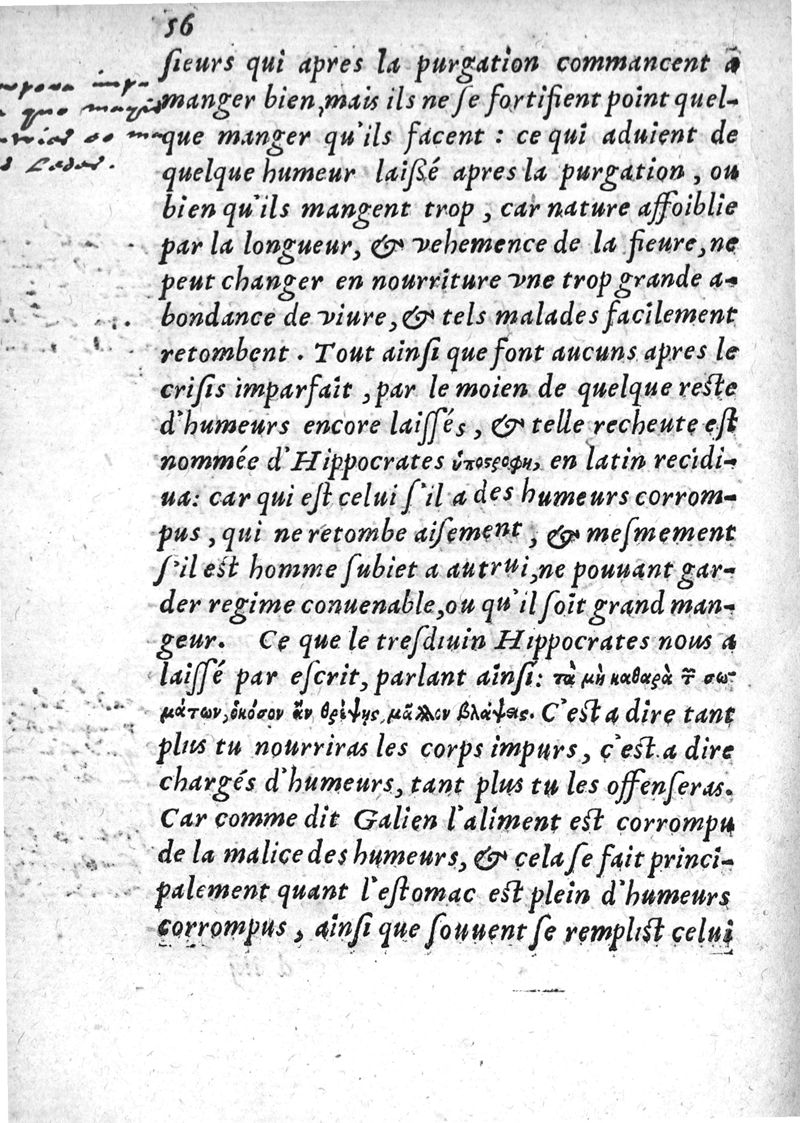 56
ſieurs qui apres la purgation commancent a
manger bien, mais ils ne ſe fortifient point quel-
que manger qu'ils facent : ce qui aduient de
quelque humeur laiſſé apres la purgation, ou
bien qu'ils mangent trop, car nature affoiblie
par la longueur, & vehemence de la fieure, ne
peut changer en nourriture vne trop grande a-
bondance de viure, & tels malades facilement
retombent. Tout ainſi que font aucuns apres le
criſis imparfait, par le moien de quelque reſte
d'humeurs encore laiſſés, & telle recheute eſt
nommée d'Hippocrates ὑποςροφη, en latin recidi-
ua: car qui eſt celui ſ'il a des humeurs corrom-
pus, qui ne retombe aiſement, & meſmement
ſ'il eſt homme ſubiet a autrui, ne pouuant gar-
der regime conuenable, ou qu'il ſoit grand man-
geur. Ce que le treſdıuin Hippocrates nous a
laiſſé par eſcrit, parlant ainſi: τὰ μὴ καθαρὰ τ͂ σω-
μάτων, ὁκόσον ἂν θρέψης, μᾶλλον βλάψεις. C'eſt a dire tant
plus tu nourriras les corps impurs, c'eſt a dire
chargés d'humeurs, tant plus tu les offenſeras.
Car comme dit Galien l'aliment eſt corrompu
de la malice des humeurs, & cela ſe fait princi-
palement quant l'eſtomac eſt plein d'humeurs
corrompus, ainſi que ſouuent ſe remplıſt celui